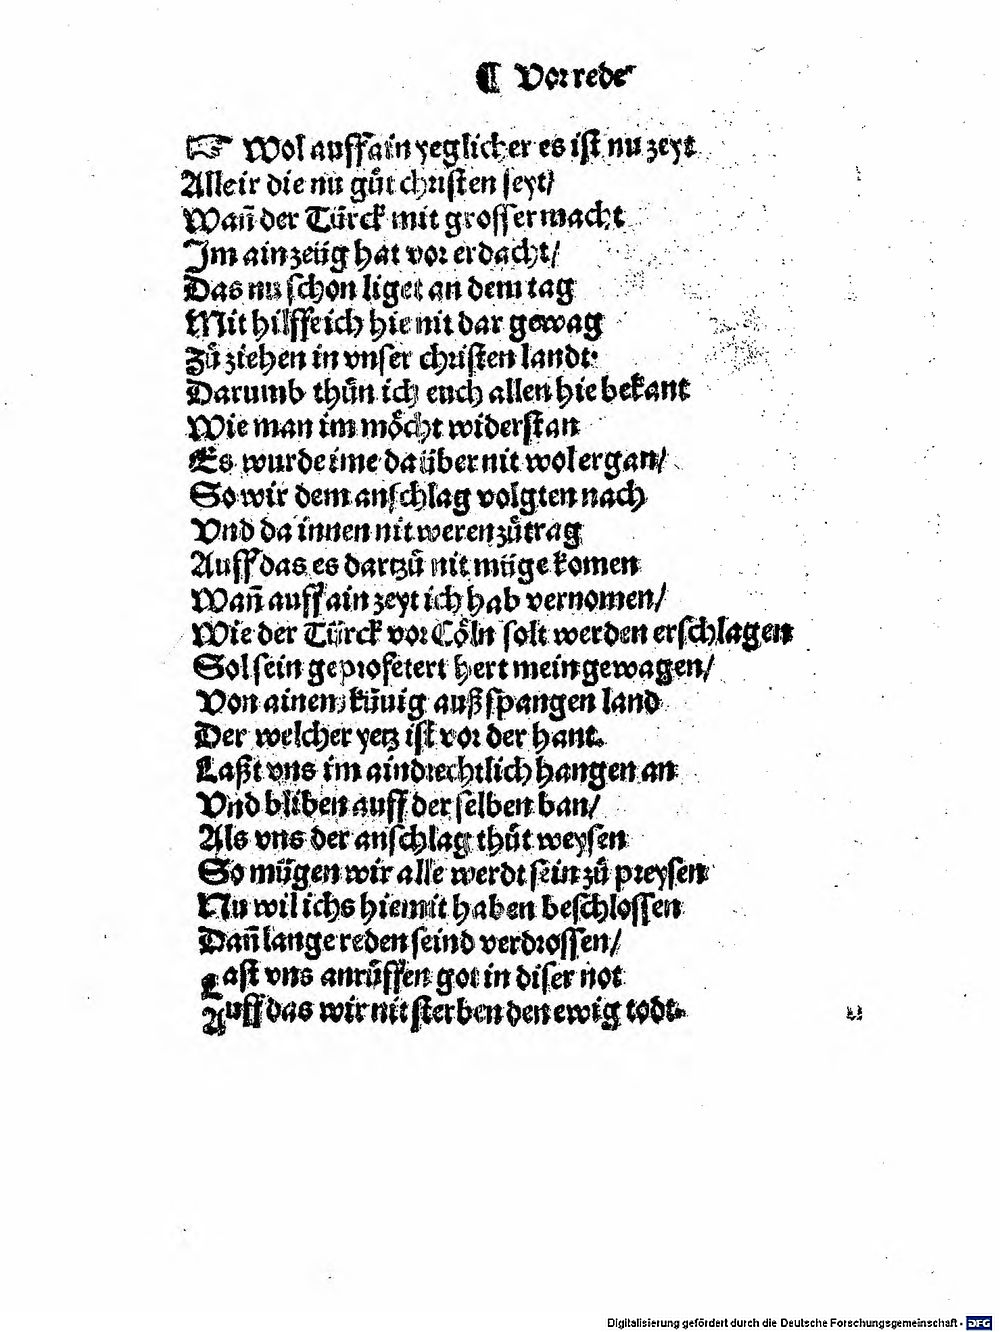 ¶ Vorrede
☞ Wol auff ain yeglicher es ist nu zeyt
Alle ir die nu gůt christen seyt/
Wañ der Türck mit grosser macht
Im ain zeüg hat vor erdacht/
Das nu schon liget an dem tag
Mit hilff eich hie nit dar gewag
Zů ziehen in vnser christen landt:
Darumb thůn ich euch allen hie bekant
Wie man im möcht widerstan
Es wurde ime daüber nit wol ergan/
So wir dem anschlag volgten nach
Vnd da innen nit weren zůtrag
Auff das es dartzů nit müge komen
Wañ auff ain zeyt ich hab vernomen/
Wie der Türck vor Cöln solt werden erschlagen
Sol sein geprofetert hert mein gewagen/
Von ainem künig auß spangen land
Der welcher yetz ist vor der hant.
Laßt vns im aindrechtlich hangen an
Vnd bliben auff der selben ban/
Als vns der anschlag thůt weysen
So mügen wir alle werdt sein zů preysen
Nu wil ichs hiemit haben beschlossen
Dañ lange reden seind verdrossen/
Last vns anrůffen got in diser not
Auff das wir nit sterben den ewig todt.
Digitalisierung gefördert durch die Deutsche Forschungsgemeinschaft - DFG